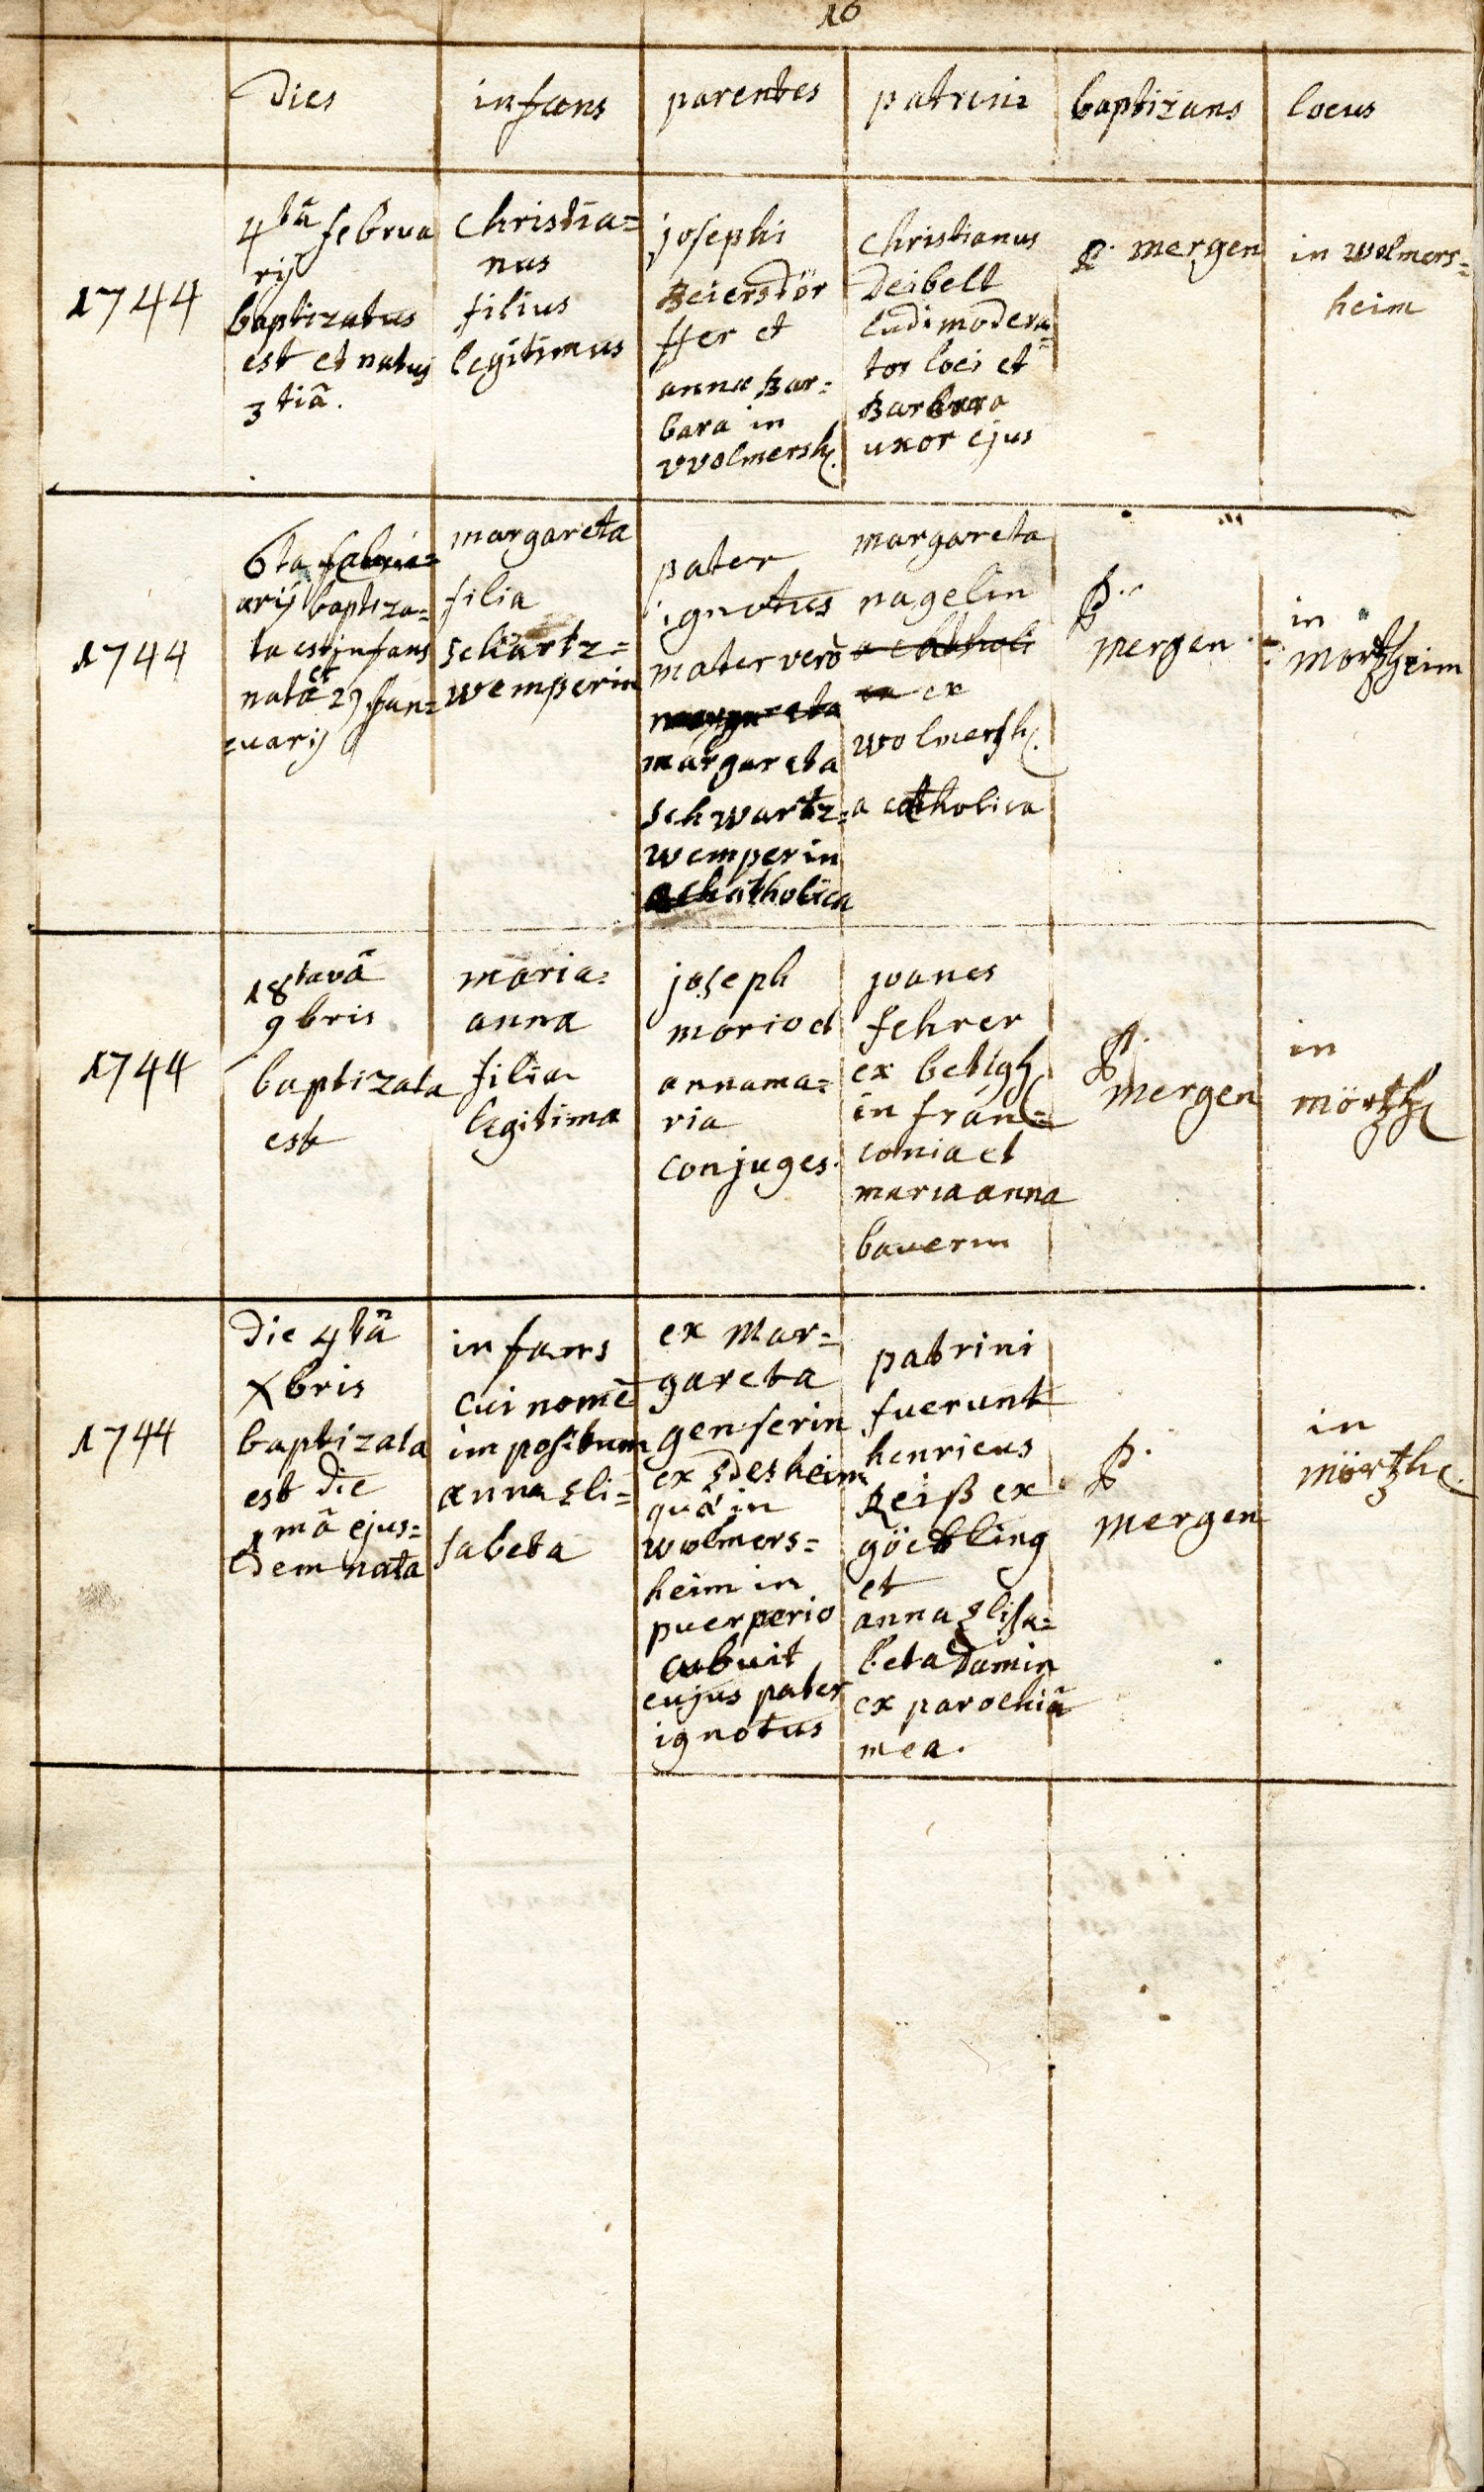 16
Dies
infans
parentes
patrini
baptizans
locus
1744
4tâ februa
rij
baptizatus
est et natus
3 tiâ.
Christia=
nus
filius
legitimus
josephi
Beiersdör
ffer et
anna Bar=
bara in
vvolmersh.
Christianus
Deibelt
Ludimodera=
tor loci et
Barbara
uxor ejus
P. mergen
in wolmers=
heim
1744
6ta febru=
arij baptiza=
ta est infans
et
nata 29 Jan=
uarij
margareta
filia
schartz=
wemperin
pater
ignotus
mater verò
margareta
margareta
schwartz=
wemperin
acatholica
margareta
nagelin
a catholi
ca ex
wolmersh.
a catholica
P.
mergen
in
mörtzheim
1744
18tavâ
9bris
baptizata
est
maria=
anna
filia
legitima
joseph
moriod
annama=
ria
conjuges.
joanes
fehrer
ex betigh
in fran=
conia et
maria anna
bauerin
P.
mergen
in
mörtzh
1744
Die 4tâ
Xbris
baptizata
est die
1mâ ejus=
dem nata
infans
cui nomē
impositum
anna Eli=
sabeta
ex Mar=
gareta
genserin
ex Edesheim
quâ in
wolmers=
heim in
puerperio
cubuit
cujus pater
ignotus
patrini
fuerunt
henricus
Reiß ex
göckling
et
anna Elisa=
beta Damin
ex parochiâ
mea.
P.
mergen
in
mörtzh.